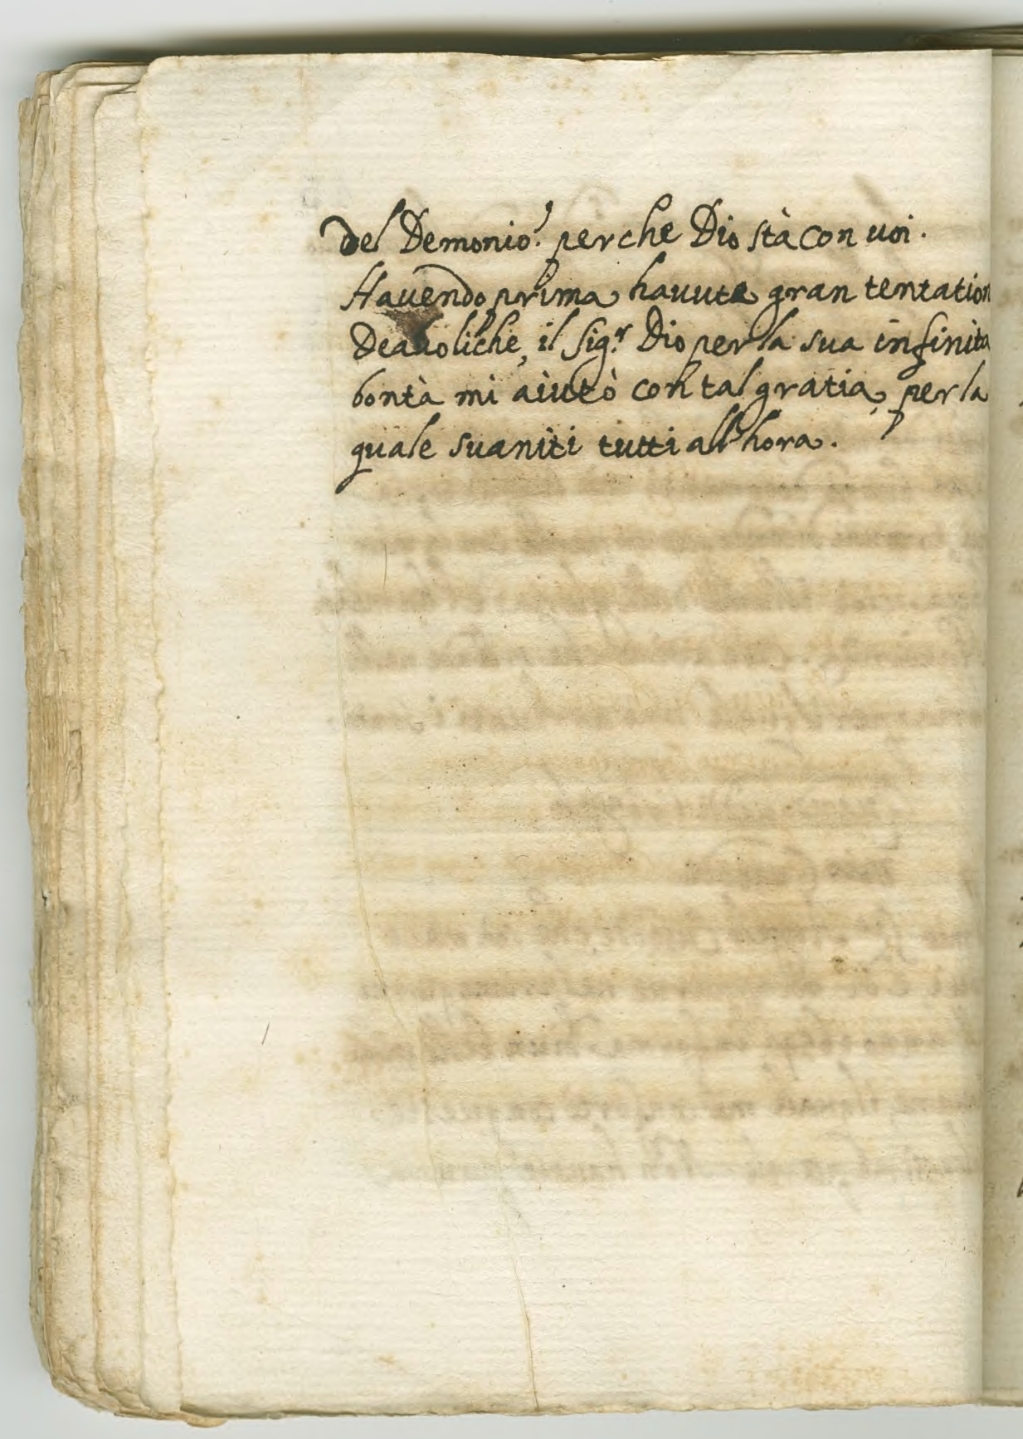 del Demonio. perche Dio stà con uoi.
Hauendo prima hauute gran tentation
Deauoliche, il Sig.r Dio per la sua infinita
bontà mi aiutò con tal gratia, per la
quale suaniti tutti all'hora.